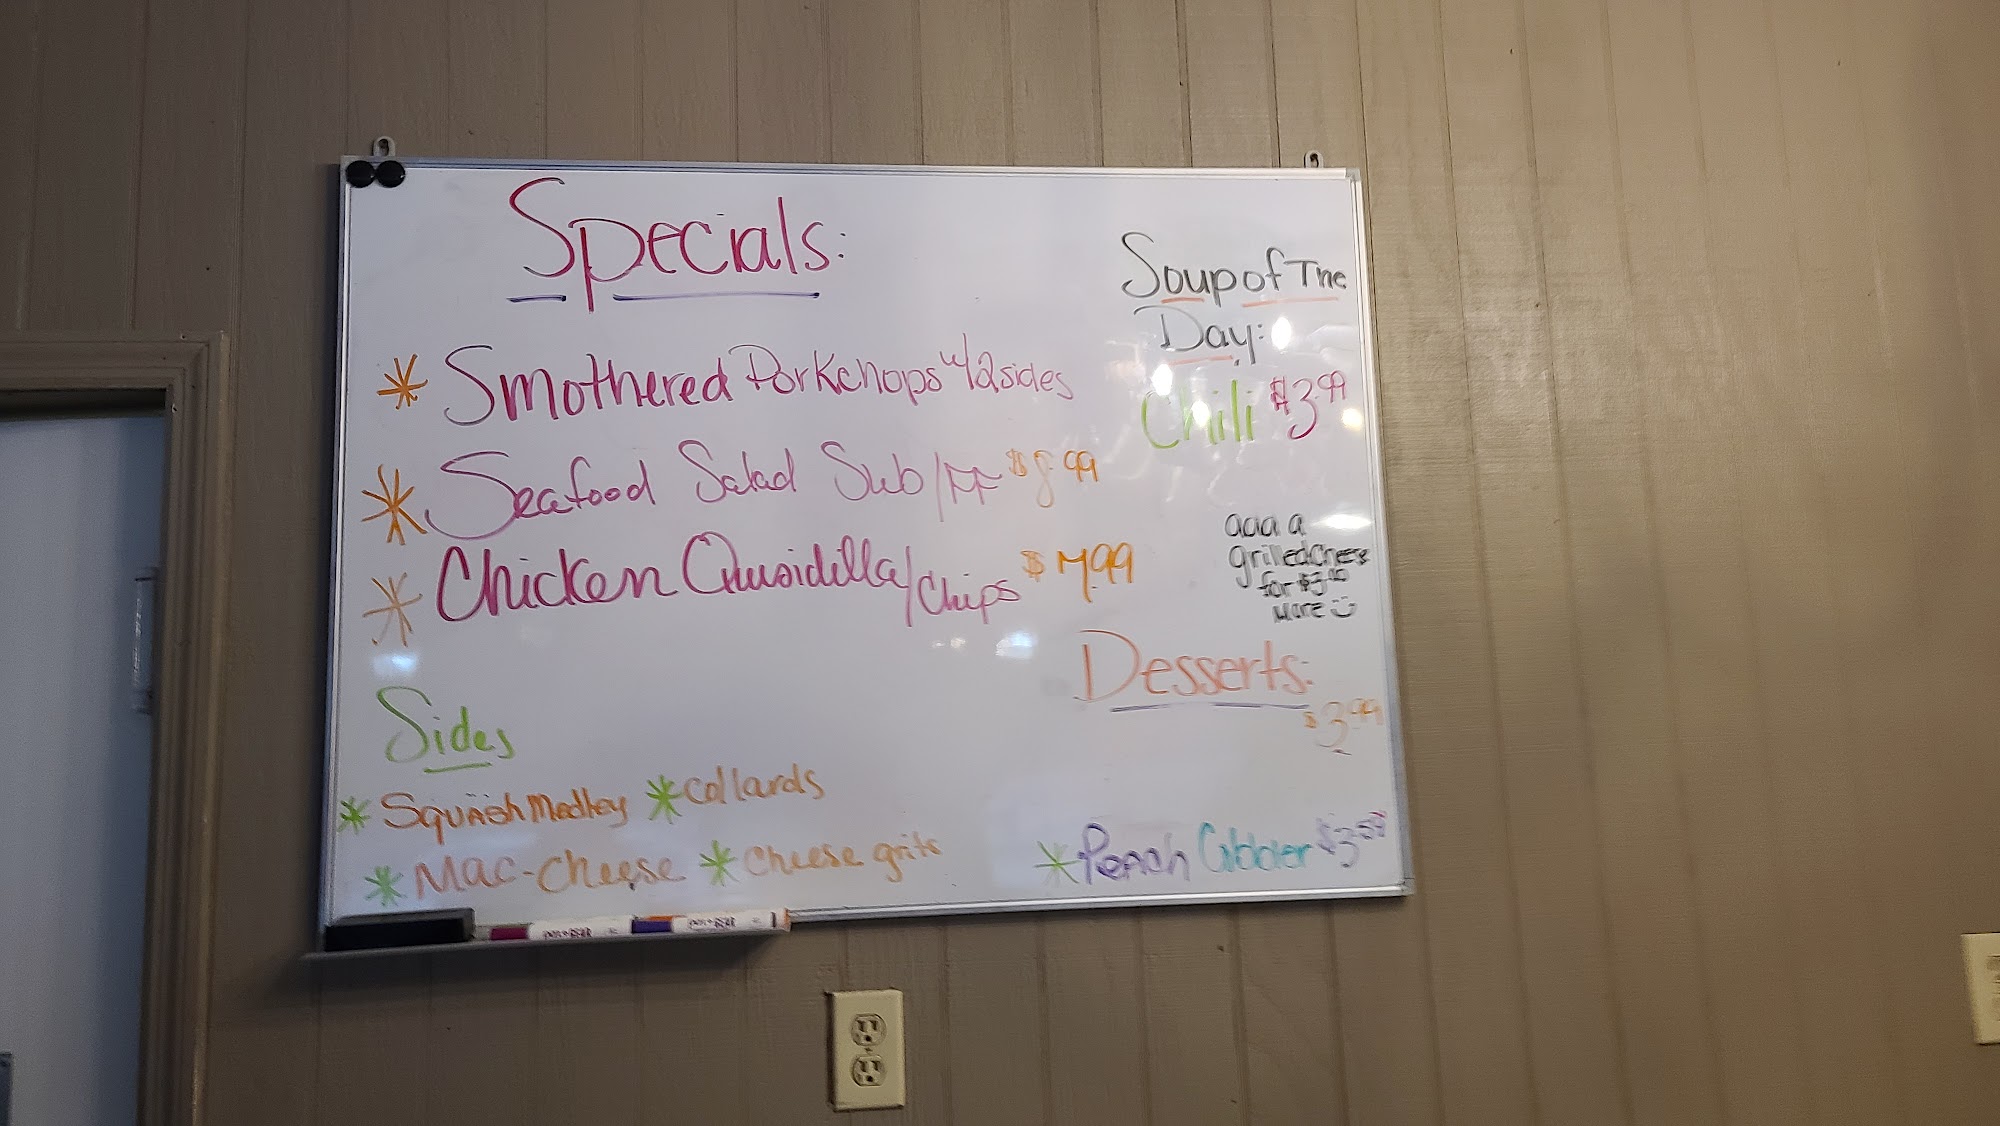 Specials:
* Smothered Porkchops w/2 sides
* Seafood Salad Sub/FF $8.99
* Chicken Qusidilla/Chips $7.99
Soup of The
Day:
Chili $3.99
add a
grilled cheese
for $3.00
more
Desserts:
$3.99
* Peach Cobbler $3.59
Sides
* Squash Medley * Collards
* Mac-Cheese * Cheese grits